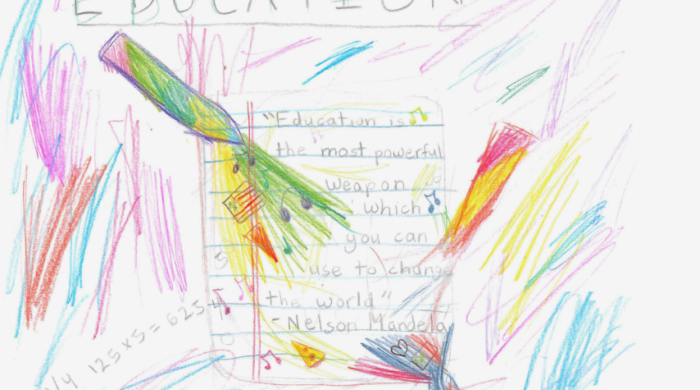 EDUCATION
"Education is
the most powerful
weapon
which
you can
use to change
the world"
-Nelson Mandela
125x5=625